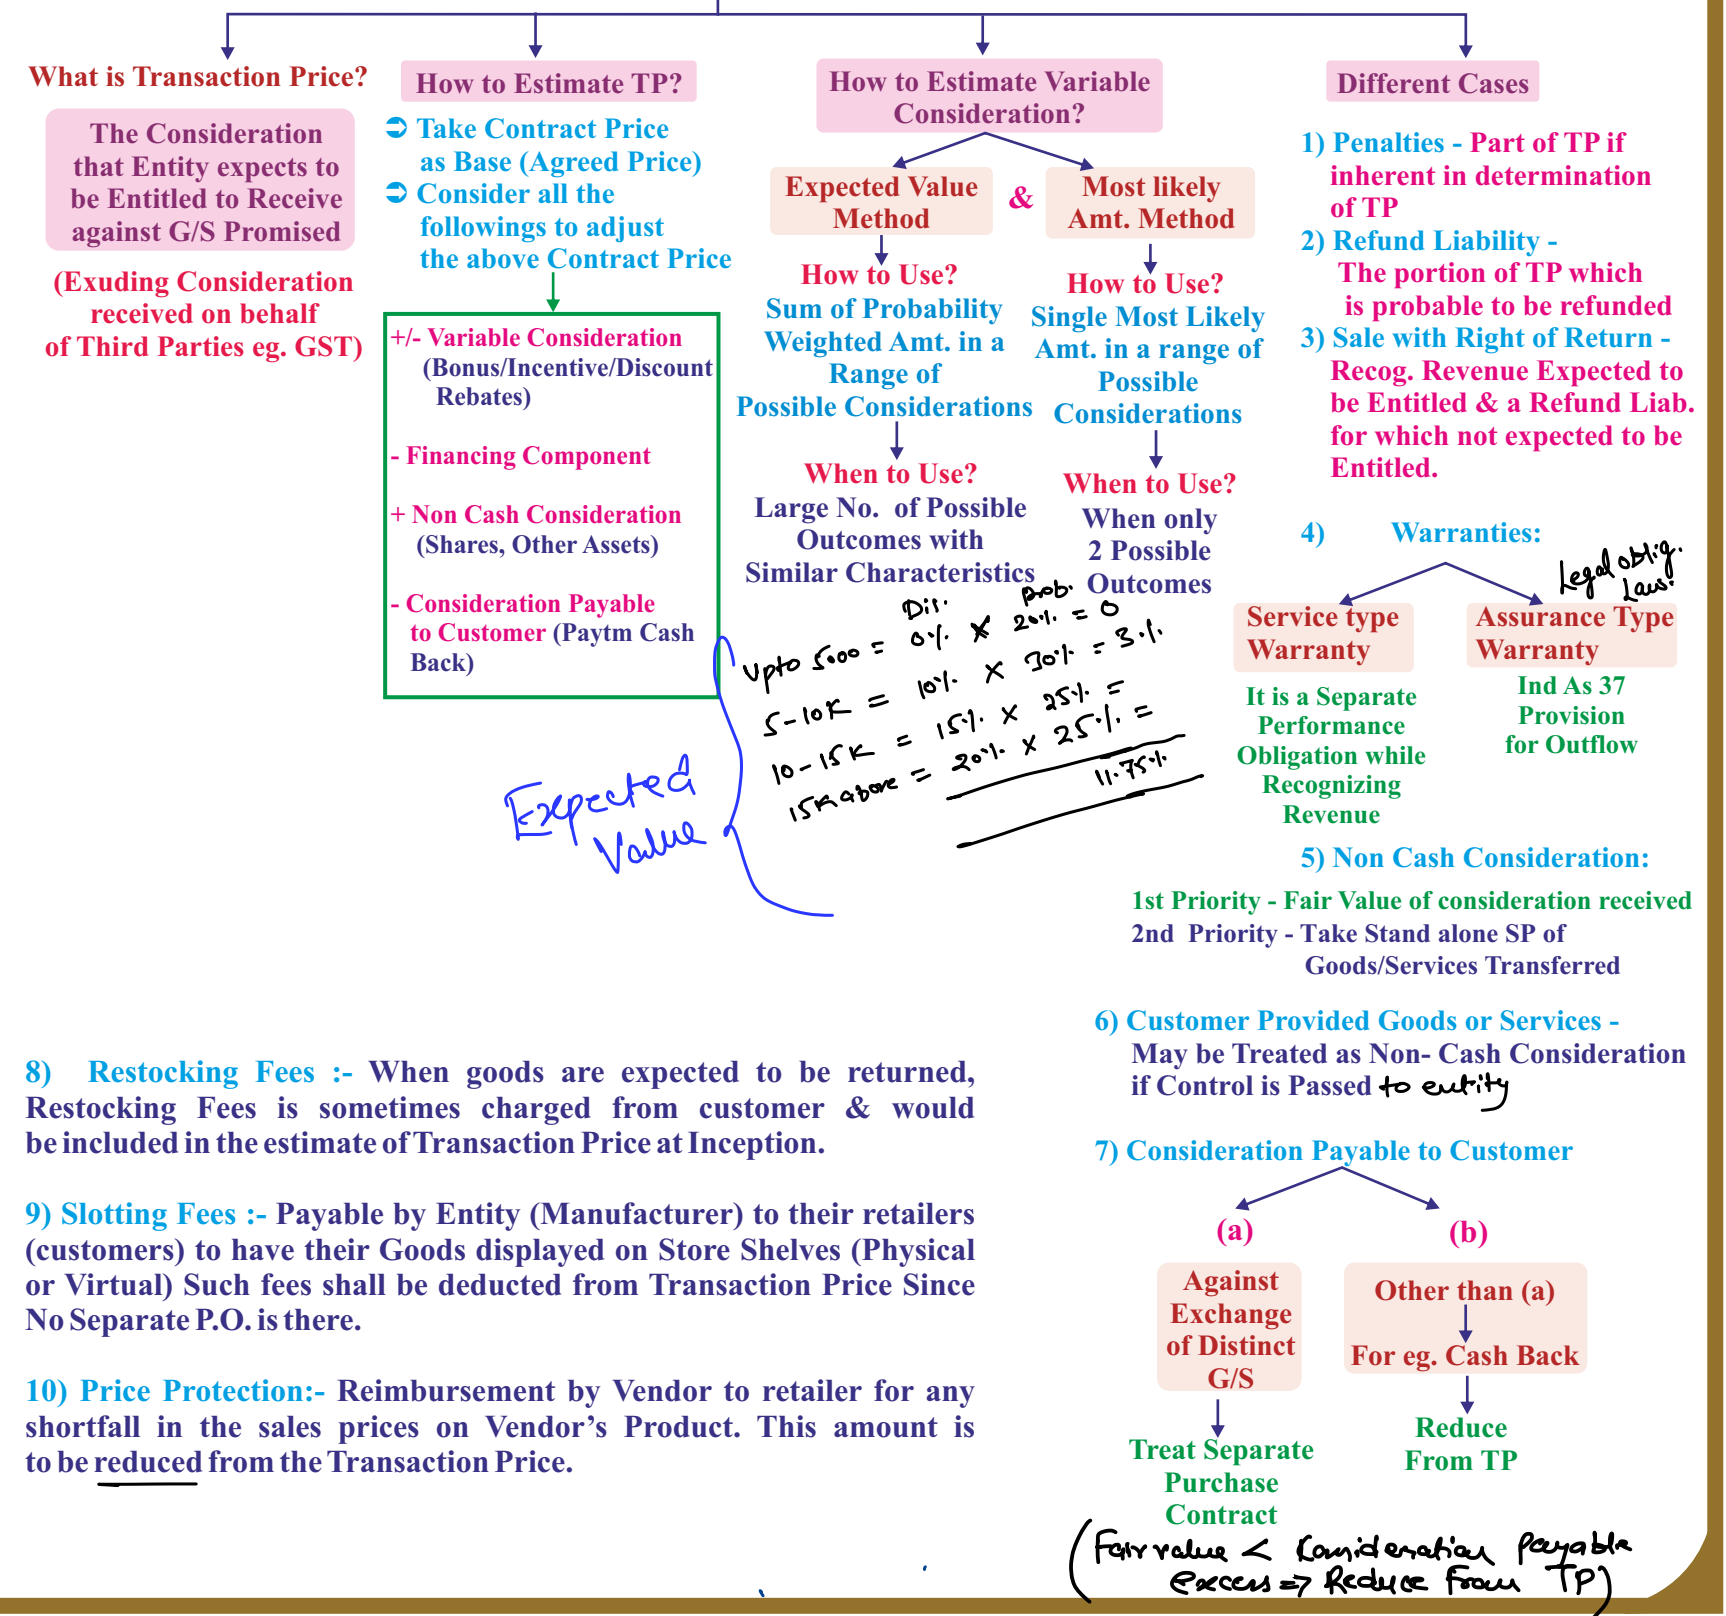 What is Transaction Price?
The Consideration
that Entity expects to
be Entitled to Receive
against G/S Promised
(Exuding Consideration
received on behalf
of Third Parties eg. GST)
How to Estimate TP?
➲ Take Contract Price
as Base (Agreed Price)
➲ Consider all the
followings to adjust
the above Contract Price
+/- Variable Consideration
(Bonus/Incentive/Discount
Rebates)
- Financing Component
+ Non Cash Consideration
(Shares, Other Assets)
- Consideration Payable
to Customer (Paytm Cash
Back)
How to Estimate Variable
Consideration?
Expected Value
Method
&
Most likely
Amt. Method
How to Use?
Sum of Probability
Weighted Amt. in a
Range of
Possible Considerations
When to Use?
Large No. of Possible
Outcomes with
Similar Characteristics
How to Use?
Single Most Likely
Amt. in a range of
Possible
Considerations
When to Use?
When only
2 Possible
Outcomes
Dis. Prob.
Upto 5000 = 0% X 20% = 0
5-10K = 10% X 30% = 3%
10-15K = 15% X 25% =
15K above = 20% X 25% =
11.75%
Expected
Value
Different Cases
1) Penalties - Part of TP if
inherent in determination
of TP
2) Refund Liability -
The portion of TP which
is probable to be refunded
3) Sale with Right of Return -
Recog. Revenue Expected to
be Entitled & a Refund Liab.
for which not expected to be
Entitled.
4) Warranties:
Legal oblig.
Laws.
Service type
Warranty
It is a Separate
Performance
Obligation while
Recognizing
Revenue
Assurance Type
Warranty
Ind As 37
Provision
for Outflow
5) Non Cash Consideration:
1st Priority - Fair Value of consideration received
2nd Priority - Take Stand alone SP of
Goods/Services Transferred
6) Customer Provided Goods or Services -
May be Treated as Non- Cash Consideration
if Control is Passed to entity
7) Consideration Payable to Customer
(a)
Against
Exchange
of Distinct
G/S
Treat Separate
Purchase
Contract
(b)
Other than (a)
For eg. Cash Back
Reduce
From TP
(Fair value < Consideration payable
excess => Reduce From TP)
8) Restocking Fees :- When goods are expected to be returned,
Restocking Fees is sometimes charged from customer & would
be included in the estimate of Transaction Price at Inception.
9) Slotting Fees :- Payable by Entity (Manufacturer) to their retailers
(customers) to have their Goods displayed on Store Shelves (Physical
or Virtual) Such fees shall be deducted from Transaction Price Since
No Separate P.O. is there.
10) Price Protection:- Reimbursement by Vendor to retailer for any
shortfall in the sales prices on Vendor's Product. This amount is
to be reduced from the Transaction Price.